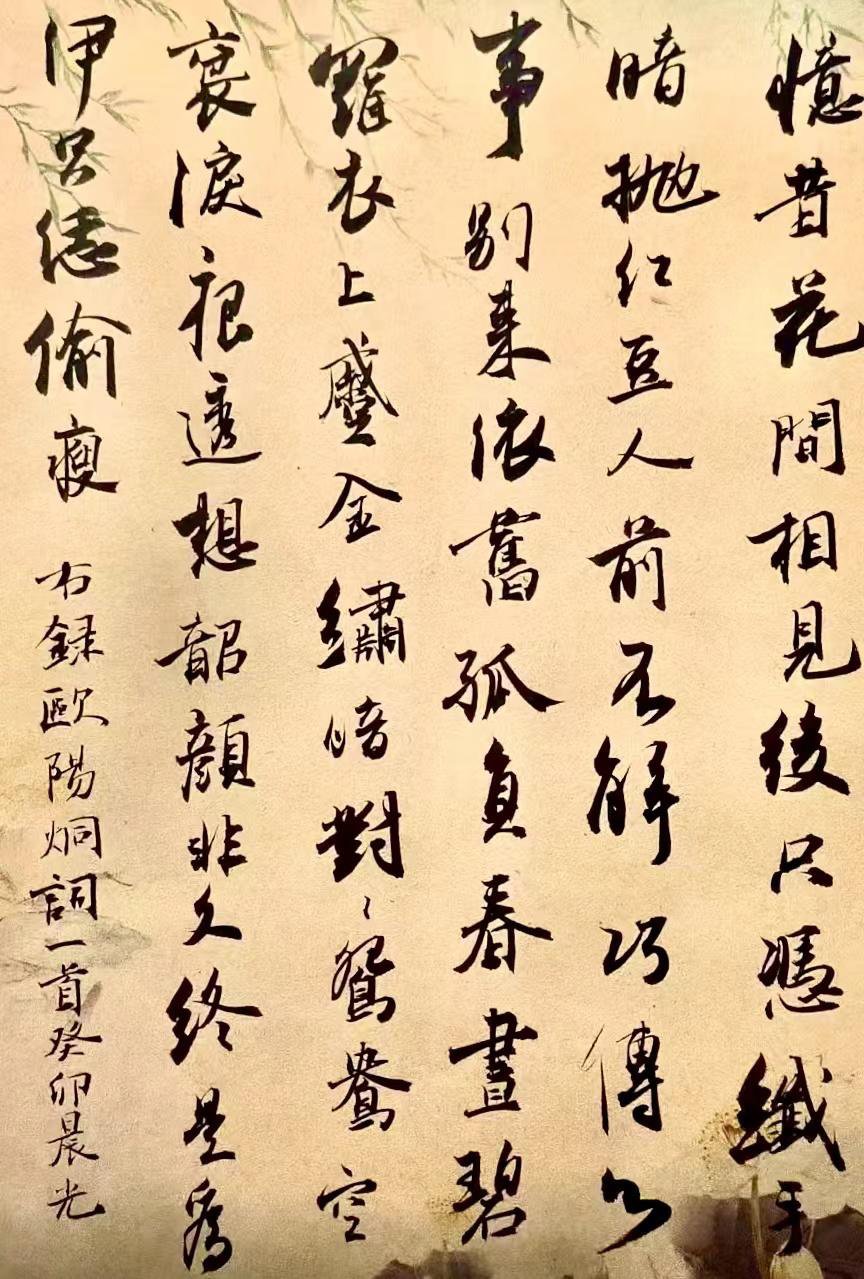 憶昔花間相見後只憑纖手
暗拋紅豆人前不解巧傳心
事別來依舊孤負春晝碧
羅衣上蹙金繡睹對〻鴛鴦空
裛淚痕透想韶顏非久終是爲
伊只恁偷瘦
右録歐陽炯詞一首癸卯晨光